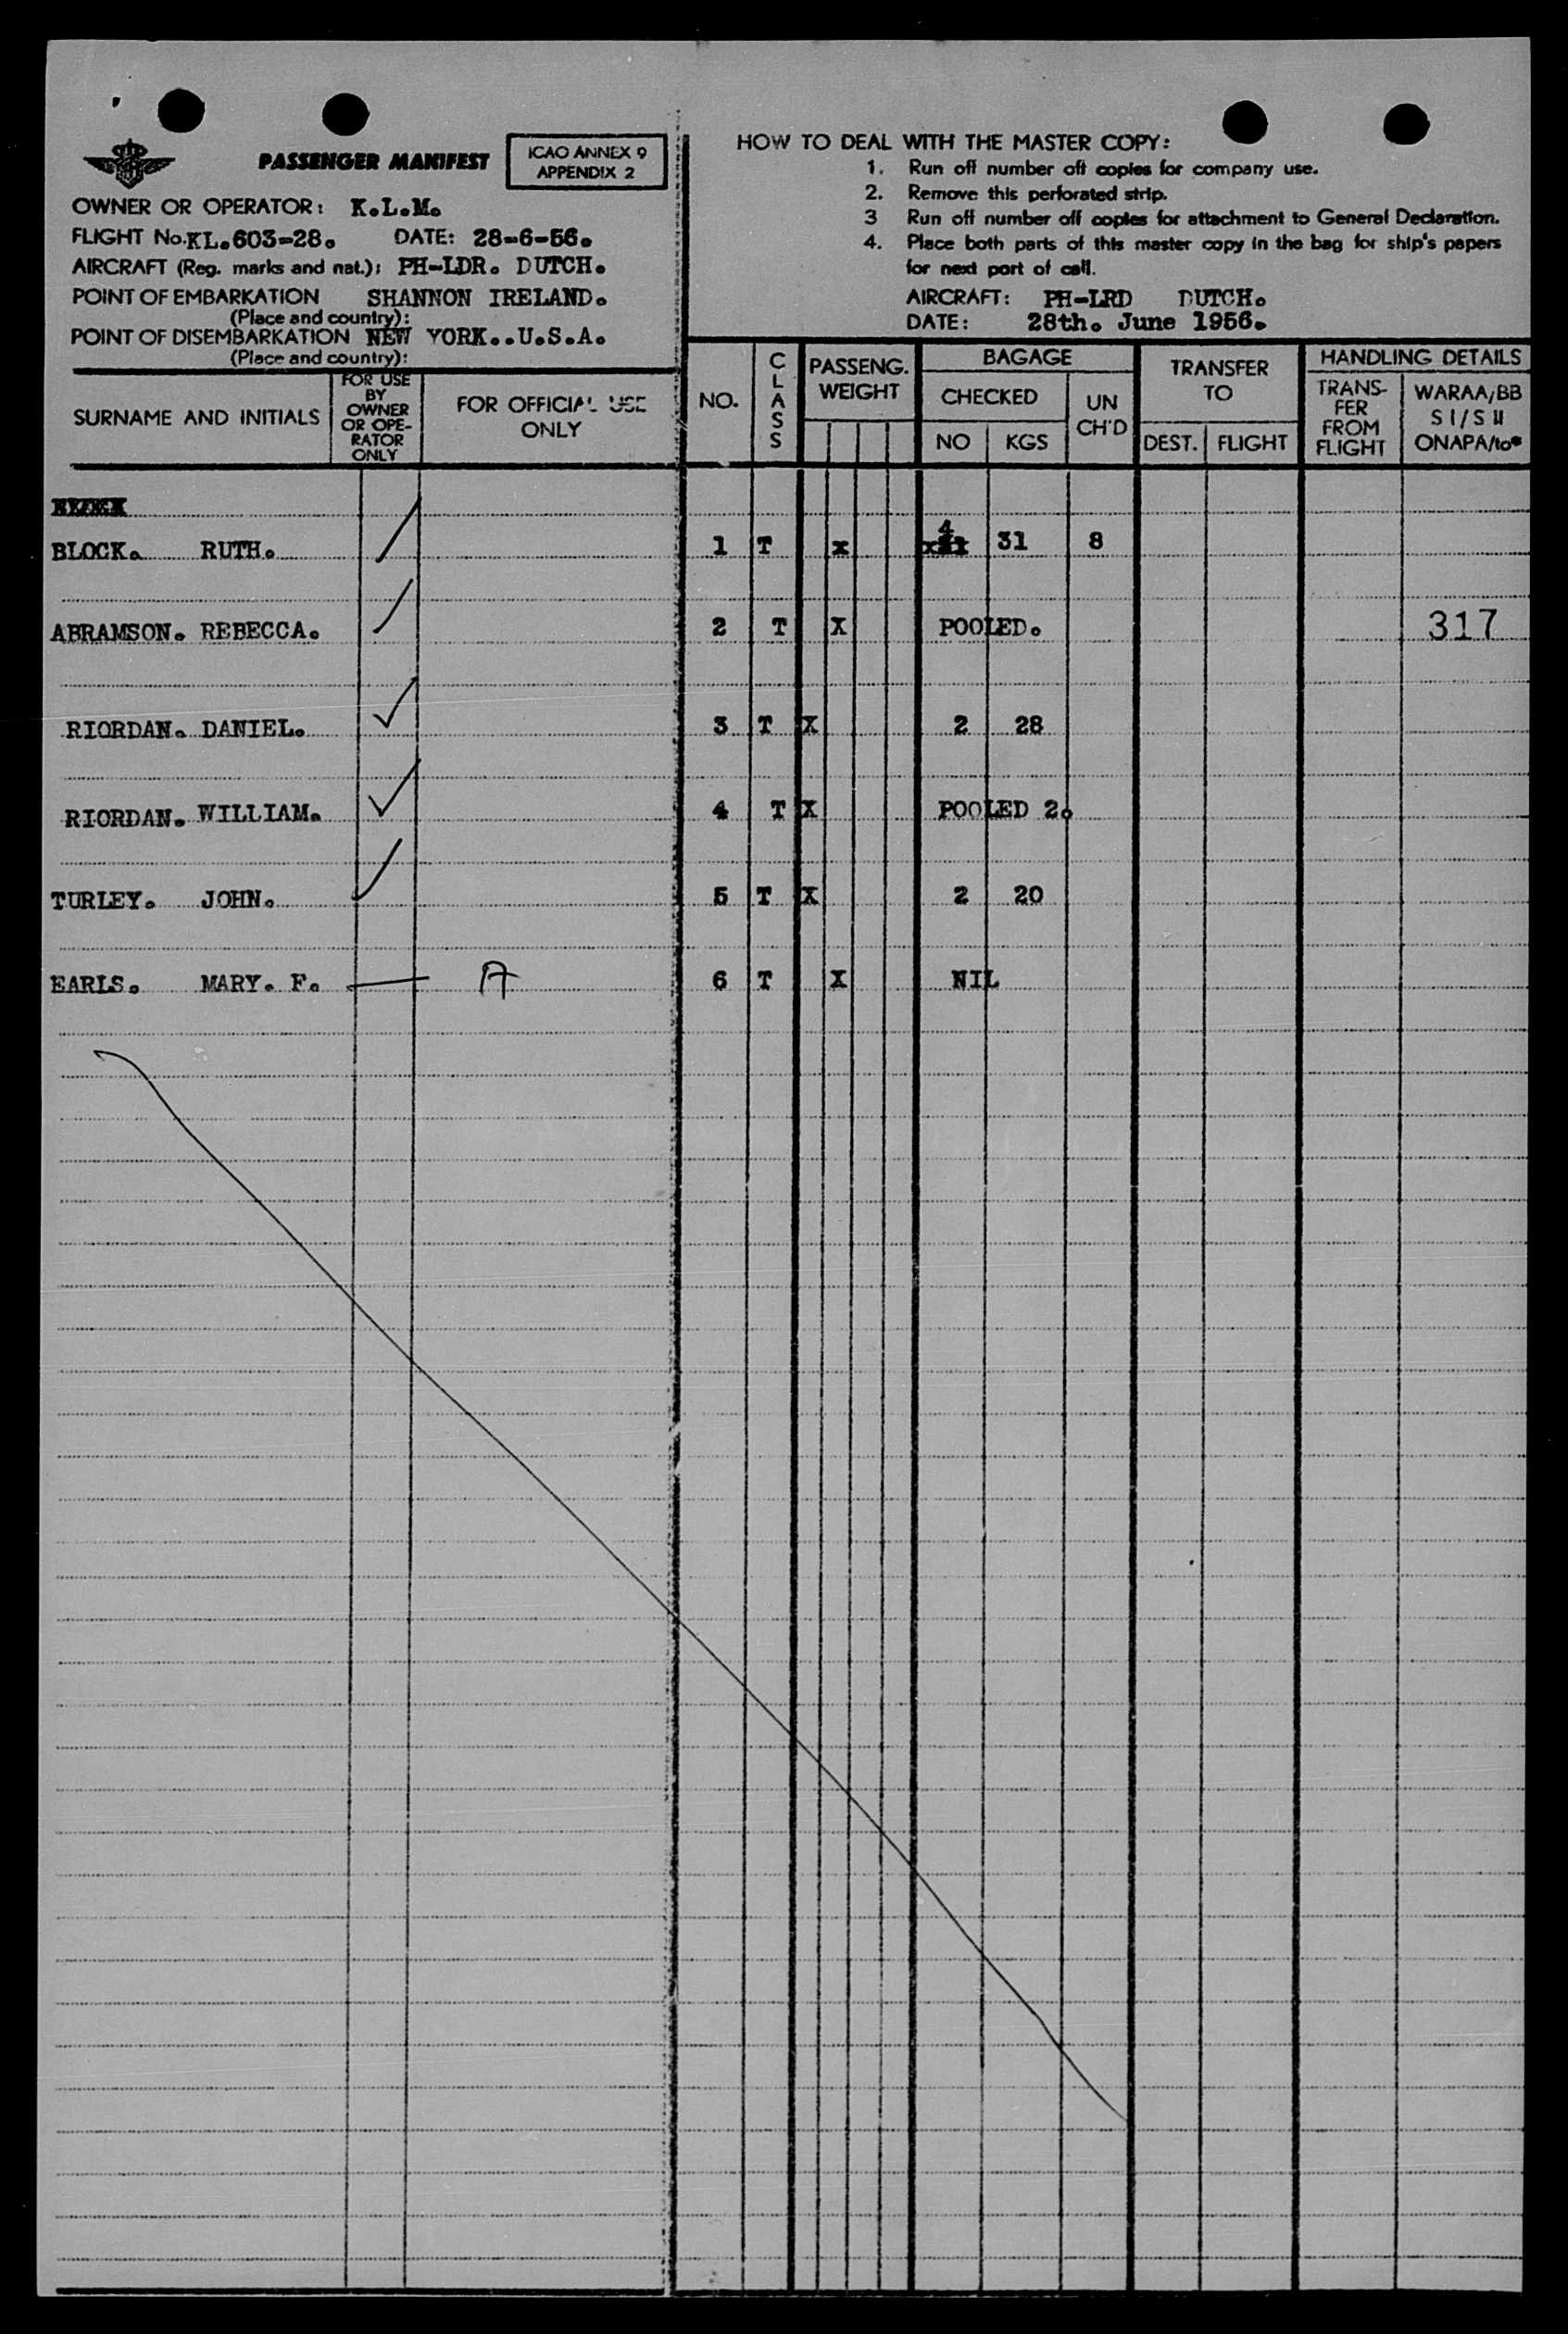 PASSENGER MANIFEST
ICAO ANNEX 9
APPENDIX 2
OWNER OR OPERATOR: K.L.M.
FLIGHT No. KL.603-28. DATE: 28-6-56.
AIRCRAFT (Reg. marks and nat.): PH-LDR. DUTCH.
POINT OF EMBARKATION SHANNON IRELAND.
(Place and country):
POINT OF DISEMBARKATION NEW YORK..U.S.A.
(Place and country):
HOW TO DEAL WITH THE MASTER COPY:
1. Run off number off copies for company use.
2. Remove this perforated strip.
3 Run off number off copies for attachment to General Declaration.
4. Place both parts of this master copy in the bag for ship's papers
for next port of call.
AIRCRAFT: PH-LRD DUTCH.
DATE: 28th. June 1956.
SURNAME AND INITIALS
FOR USE
BY
OWNER
OR OPE-
RATOR
ONLY
FOR OFFICIAL USE
ONLY
NO.
CLASS
PASSENG.
WEIGHT
BAGAGE
CHECKED
NO KGS
UN
CH'D
TRANSFER
TO
DEST. FLIGHT
HANDLING DETAILS
TRANS-
FER
FROM
FLIGHT
WARAA/BB
SI/SU
ONAPA/to*
BLOCK. RUTH. 1 T x 4 31 8
ABRAMSON. REBECCA. 2 T X POOLED. 317
RIORDAN. DANIEL. 3 T X 2 28
RIORDAN. WILLIAM. 4 T X POOLED 2.
TURLEY. JOHN. 5 T X 2 20
EARLS. MARY. F. A 6 T X NIL